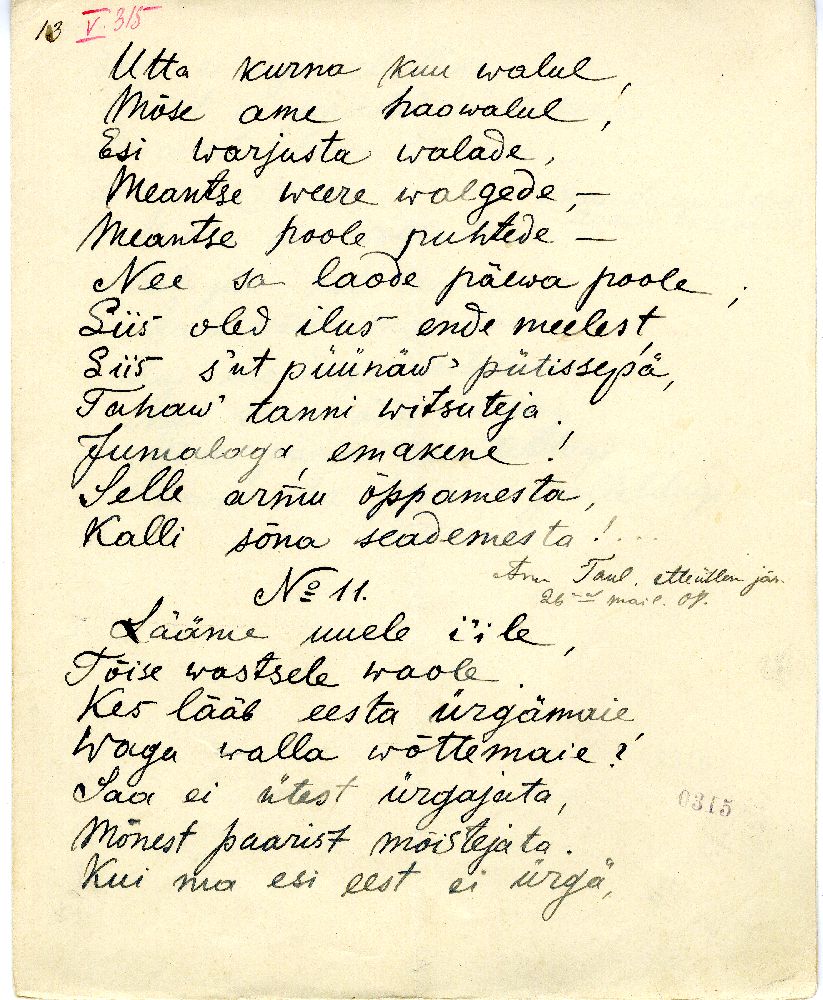 13 V. 315
Utta kurna kuu walul,
Mõse ame haowalul,
Esi warjusta walade,
Meantse weere walgede, —
Meantse poole puhtede —
Nee sa laode päewa poole;
Siis oled ilus ende meelest,
Siis s'ut püünäw' pütissepä,
Tahaw' tanni witsuteja.
Jumalaga, emakene!
Selle armu õppamesta,
Kalli sõna seademesta!...
Ann Taul. etteütlem. jär.
26 mail. 09.
No 11.
Lääme uuele i'ile,
Tõise wastsele waole.
Kes lääb eesta ürgämaie
Wagu walla wõttemaie?
Saa ei ütest ürgajata,
Mõnest paarist mõistejata.
Kui ma esi eest ei ürgä,
0315